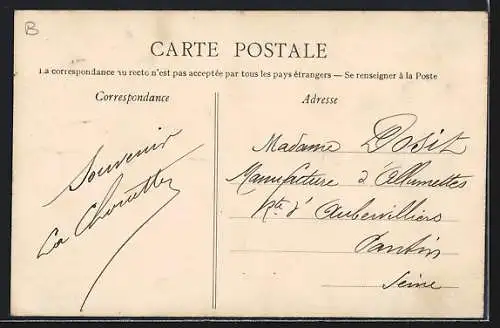 B
CARTE POSTALE
La correspondance au recto n'est pas acceptée par tous les pays étrangers — Se renseigner à la Poste
Correspondance
Adresse
Souvenir
La Chouette
Madame Dosit
Manufacture d'Allumettes
Rte d'Aubervilliers
Pantin
Seine